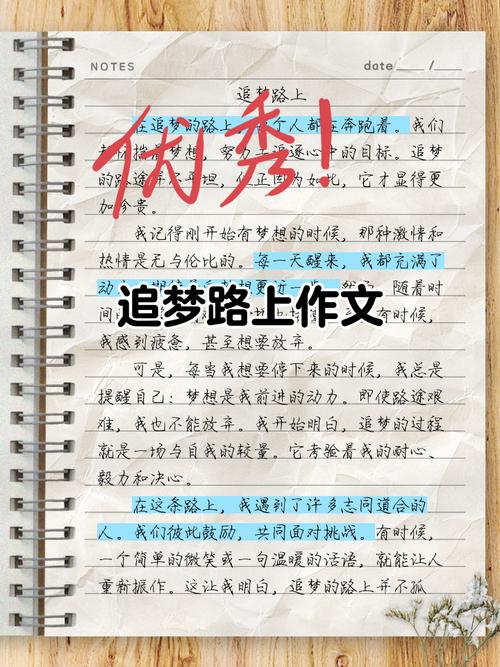 NOTES
date ___ / ___
追梦路上
在追梦的路上 个人都在奔跑着。我们
都怀揣着梦想,努力 追逐心中的目标。追梦
的路途并不平坦,但正因为如此,它才显得更
加珍贵。
优秀!
我记得刚开始有梦想的时候,那种激情和
热情是无与伦比的。每一天醒来,我都充满了
动 随着时
间 有时候,
追梦路上作文
我感到疲惫,甚至想要放弃。
可是,每当我想要停下来的时候,我总是
提醒自己:梦想是我前进的动力。即使路途艰
难,我也不能放弃。我开始明白,追梦的过程
就是一场与自我的较量。它考验着我的耐心、
毅力和决心。
在这条路上,我遇到了许多志同道合的
人。我们彼此鼓励,共同面对挑战。有时候,
一个简单的微笑或一句温暖的话语,就能让人
重新振作。这让我明白,追梦的路上并不孤